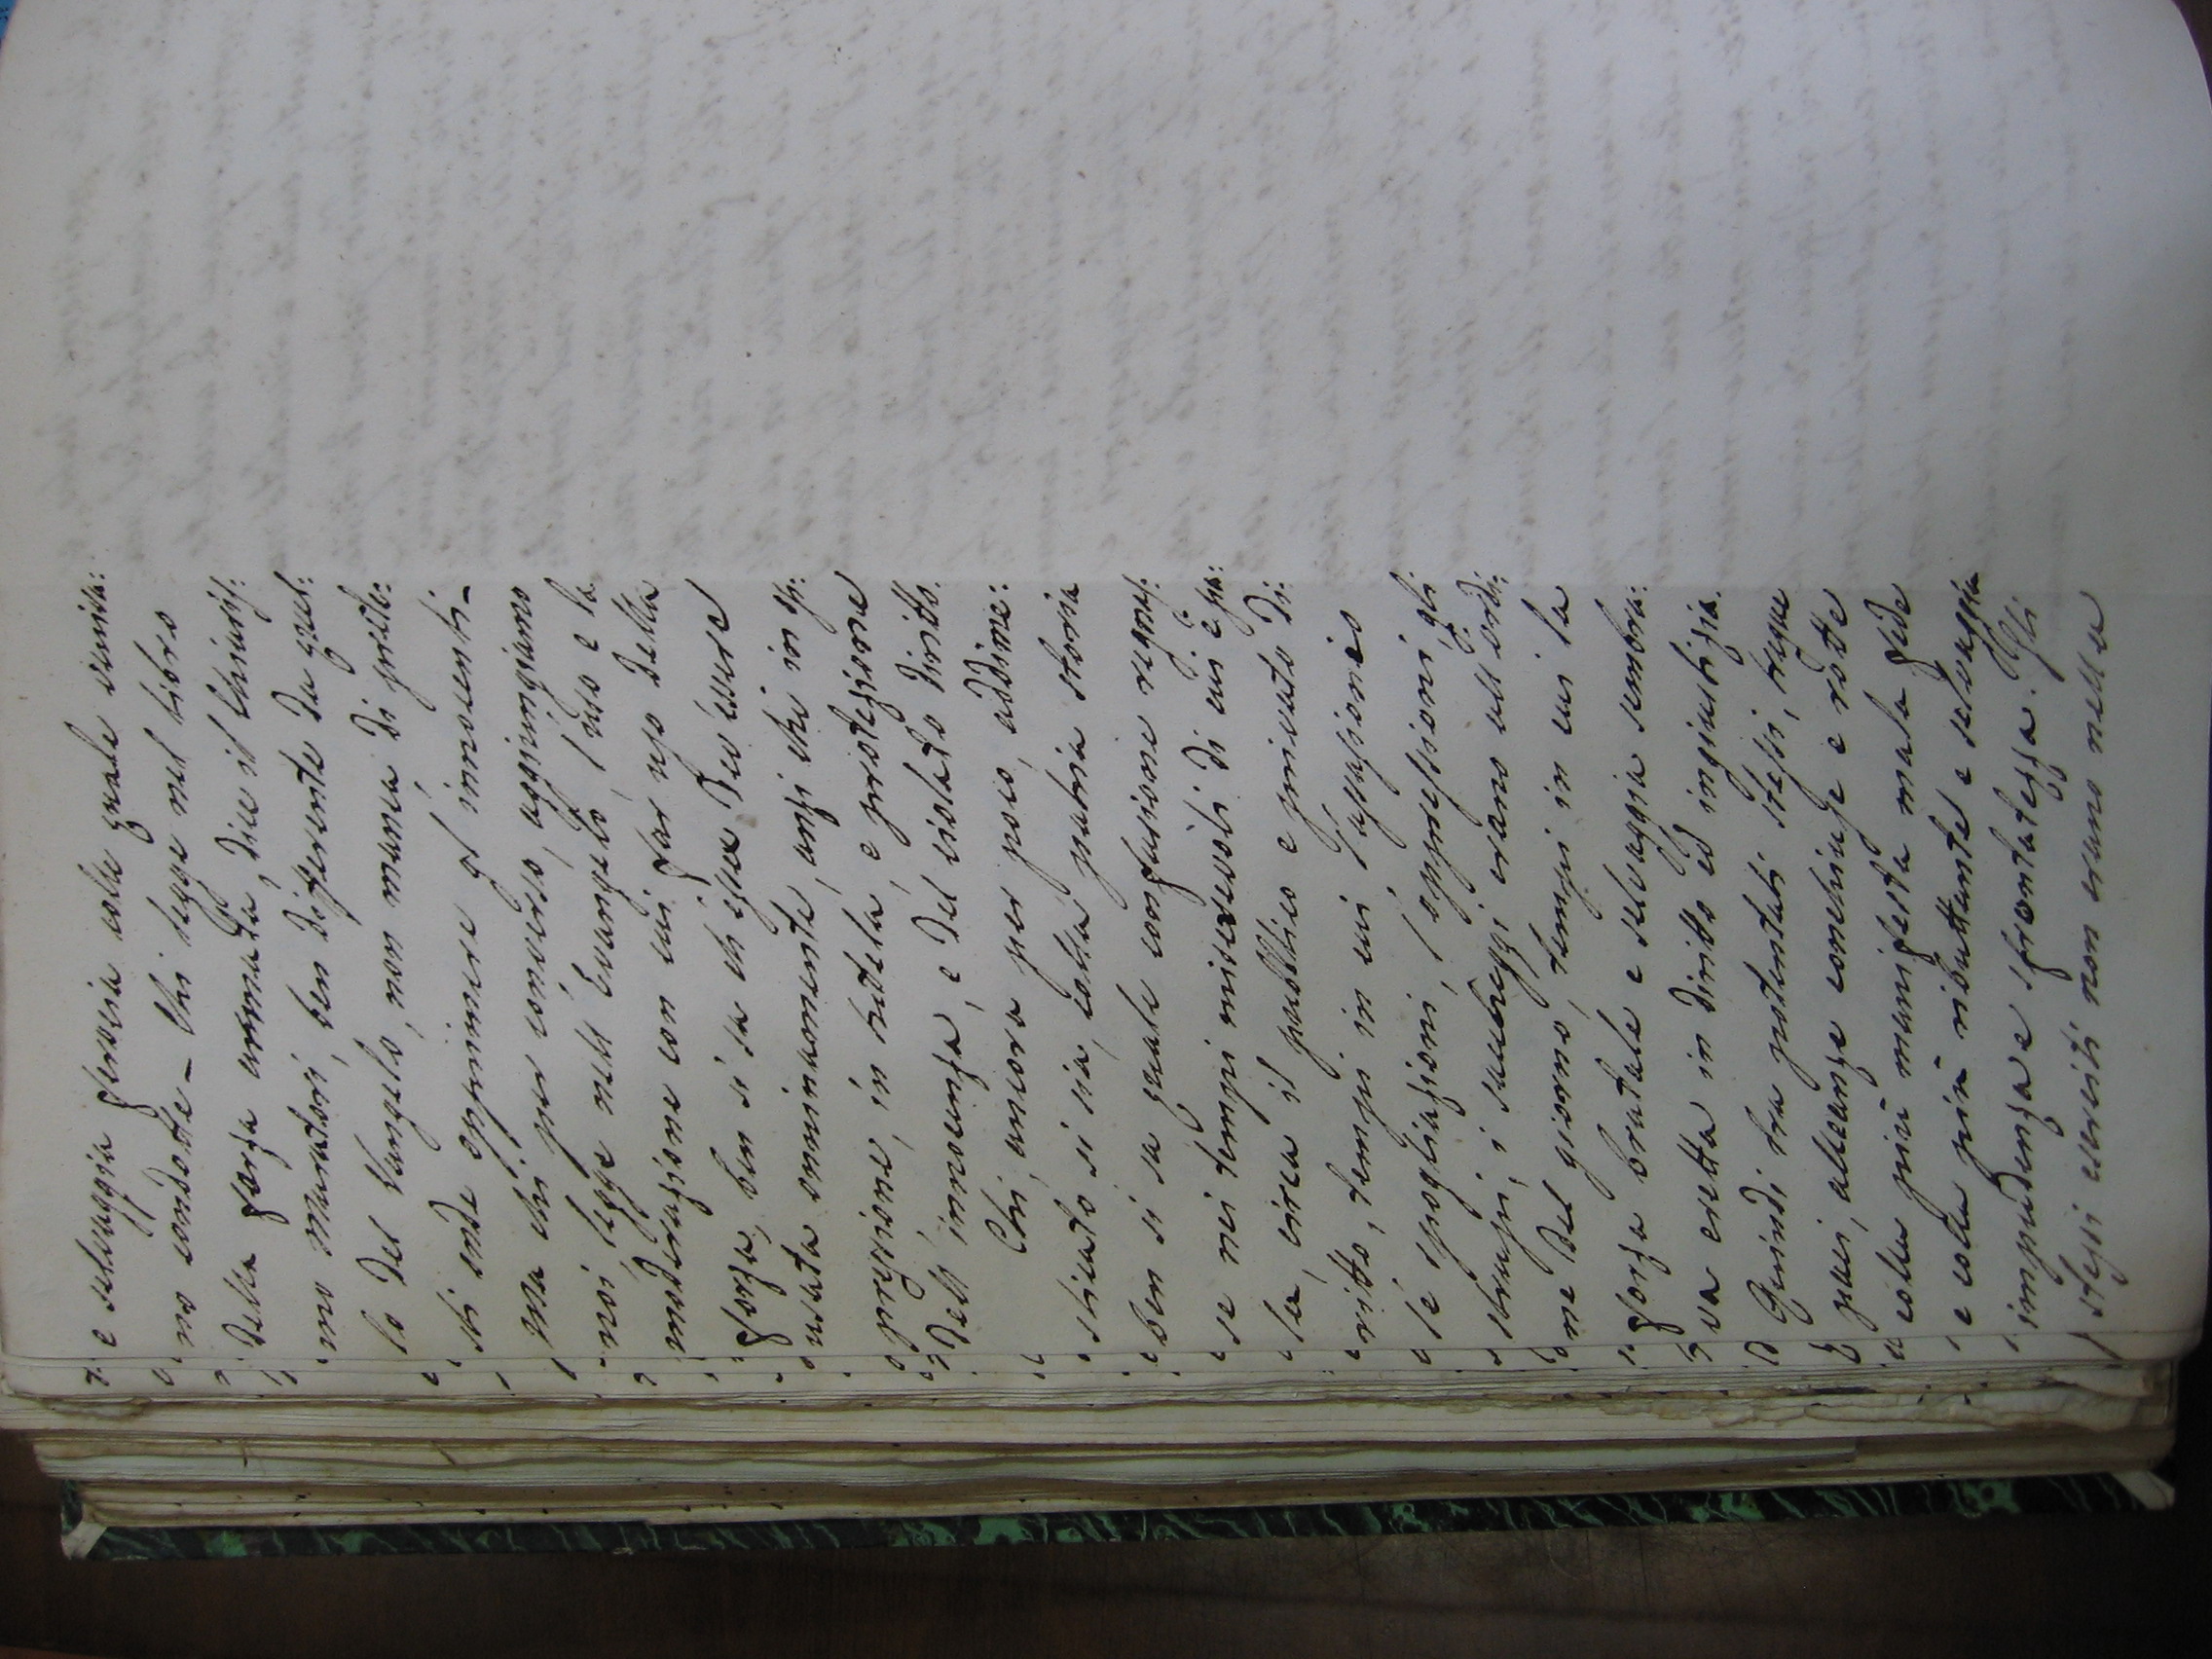 e selvaggia ferocia colla quale veniva:
no condotte - Chi legge nel libro
della forza armata, dice il chiaris:
mo Muratori, ben differente da quel:
lo del Vangelo, non manca di prete:
sti onde opprimere gl' innocenti -
ma chi per converso, aggiungiamo
noi, legge nell' Evangelo, l'uso e la
moderazione con cui far uso della
forza, ben si sa ch' essa dev' essere
usata ominamente, anzi che in op:
pressione, in tutela, e protezione
dell' innocenza, e del violato dritto.
Chi, ancora per poco, addime:
sticato si sia, colla patria storia
ben si sa quale confusione regnas:
se nei tempi miserevoli di cui è pa:
la, circa il pubblico e privato di:
ritto, tempi in cui l'assassinio
le spogliazioni, l'oppressioni, gli
strupi, i saccheggi erano all' ordi:
ne del giorno, tempi in cui la
forza brutale e selvaggia sembra:
va eretta in diritto ed ingiustizia.
Quindi tra potentati stessi, tregue
paci, alleanze conchiuse e rotte
colla più manifesta mala fede
e colla più ributtante e selvaggia
impudenza e sfrontatezza. Gli
stessi eserciti non erano nella